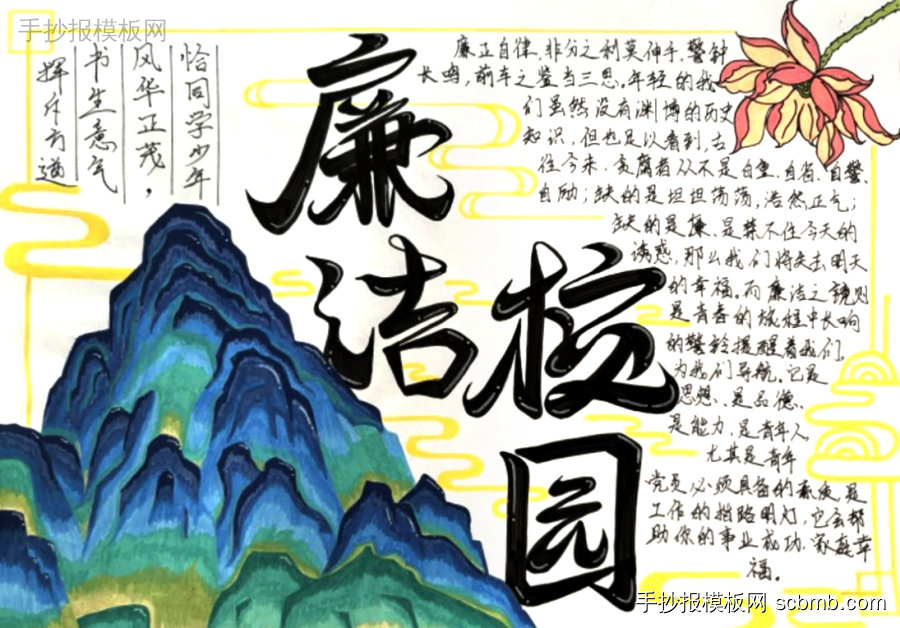 手抄报模板网
恰同学少年
风华正茂，
书生意气
挥斥方遒
廉洁校园
廉正自律、非分之利莫伸手，警钟
长鸣，前车之鉴当三思。年轻的我
们虽然没有渊博的历史
知识，但也足以看到，古
往今来，贪腐者从不是自重、自省、自警、
自励；缺的是坦坦荡荡，浩然正气；
缺的是廉、是禁不住今天的
诱惑，那么我们将失去明天
的幸福。而廉洁之镜则
是青春的旅途中长响
的警铃提醒着我们，
为我们导航。它是
思想、是品德、
是能力，是青年人
尤其是青年
党员必须具备的素质，是
工作的指路明灯，它会帮
助你的事业成功，家庭幸
福。
手抄报模板网 scbmb.com